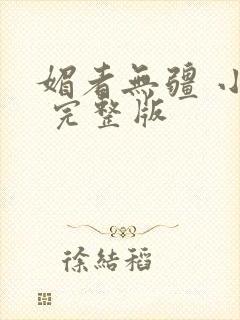 媚者無疆 小
完整版
徐結稻